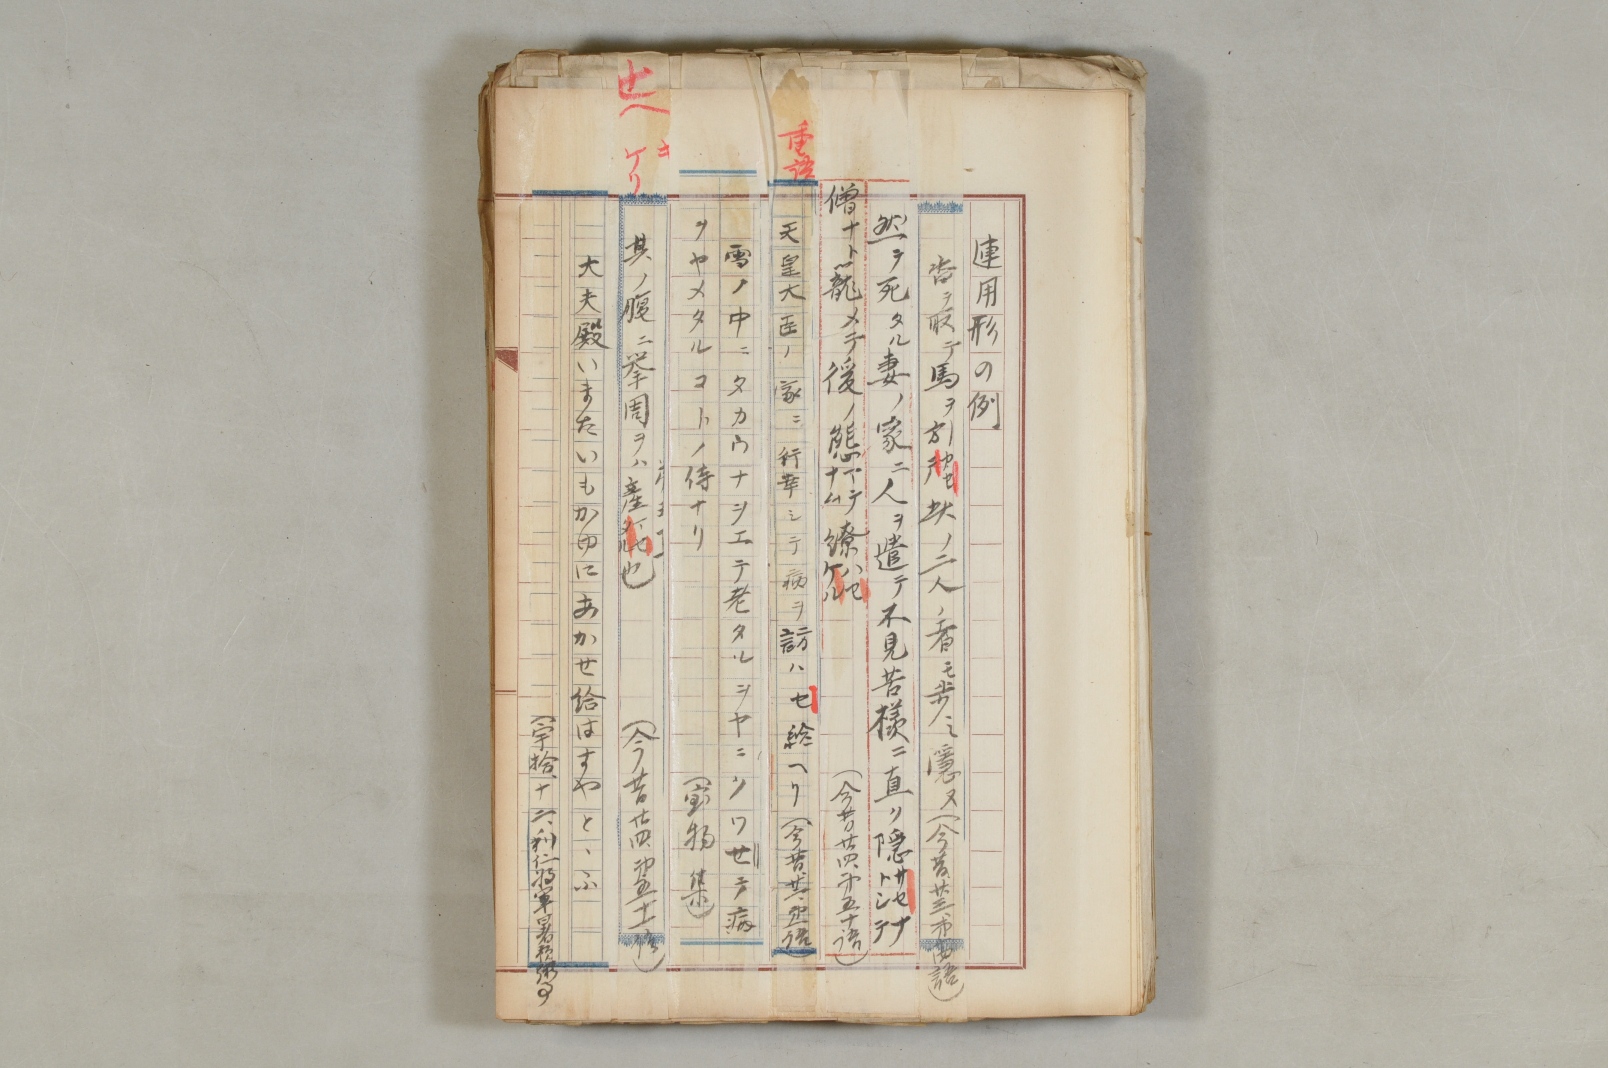 連用形の例
沓ヲ取テ馬ヲ引セ 共ノ二人ノ者モ歩ミ隠ヌ(今昔廿三 語)
然ヲ死タル妻ノ家ニ人ヲ遣テ不見苦様ニ直ク隠サセナトシテ
僧ナト籠メテ後ノ態マテナム繚ハセケル (今昔廿四、 五十語)
重語
天皇大臣ノ家ニ行幸シテ病ヲ訪ハセ給ヘリ(今昔 語)
雪ノ中ニタカウナヲエテ老タルヲヤニクワせテ病
ヲヤメタルコトノ侍ナリ (宝物集)
キ
ケリ
其ノ腹ニ挙周ヲハ産セタル也 (今昔廿四 五十一語)
大夫殿いまたいもかゆにあかせ給はすやとヽふ
(宇拾、十 利仁将軍暑預粥事